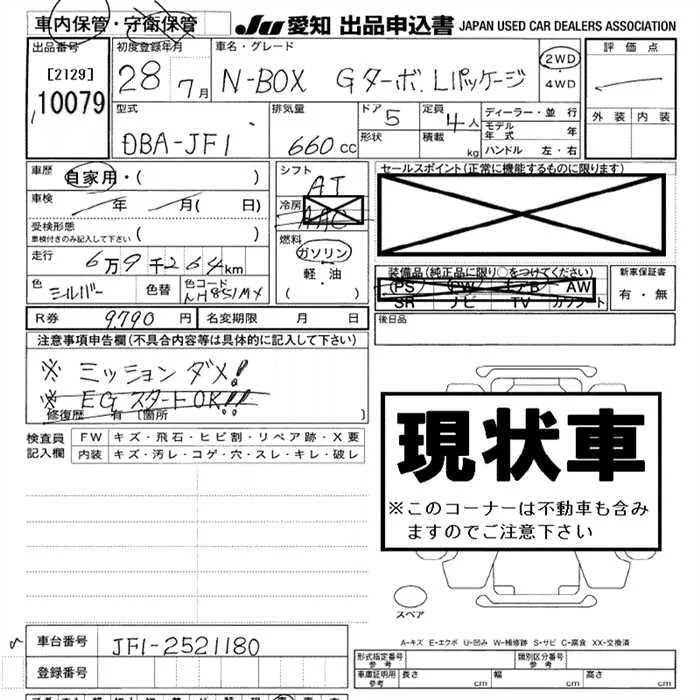 車内保管・守衛保管
JU 愛知 出品申込書 JAPAN USED CAR DEALERS ASSOCIATION
出品番号 初度登録年月 車名・グレード 評価点
[2129]
10079 28 7月 N-BOX Gターボ、Lパッケージ 2WD・4WD
外装 内装
型式 排気量 ドア 定員 ディーラー・並行
DBA-JF1 660cc 5 4人 モデル年式 年
形状 積載 kg ハンドル 左・右
車歴 自家用・( ) シフト AT セールスポイント(正常に機能するものに限ります)
車検 年 月( 日) 冷房 AAC
受検形態 ( )
車検付きのみ記入して下さい
燃料 ガソリン
走行 6万9千264km 軽・油
装備品(純正品に限り○をつけてください) 新車保証書
色 シルバー 色替 色コード NH851MX ( )
(PS) (PW) エアB AW 有・無
SR ナビ TV カワシート
R券 9,790円 名変期限 月 日 後日品
注意事項申告欄(不具合内容等は具体的に記入して下さい)
※ ミッション ダメ!
※ EG スタートOK!!
修復歴 有[箇所 ]
検査員記入欄 FW キズ・飛石・ヒビ割・リペア跡・X要
内装 キズ・汚レ・コゲ・穴・スレ・キレ・破レ
現状車
※このコーナーは不動車も含みますのでご注意下さい
スペア
A-キズ E-エクボ U-凹み W-補修跡 S-サビ C-腐食 XX-交換済
車台番号 JF1-2521180
形式指定番号 参考 類別区分番号 参考
登録番号 車庫証明用 参考 長さ cm 幅 cm 高さ cm